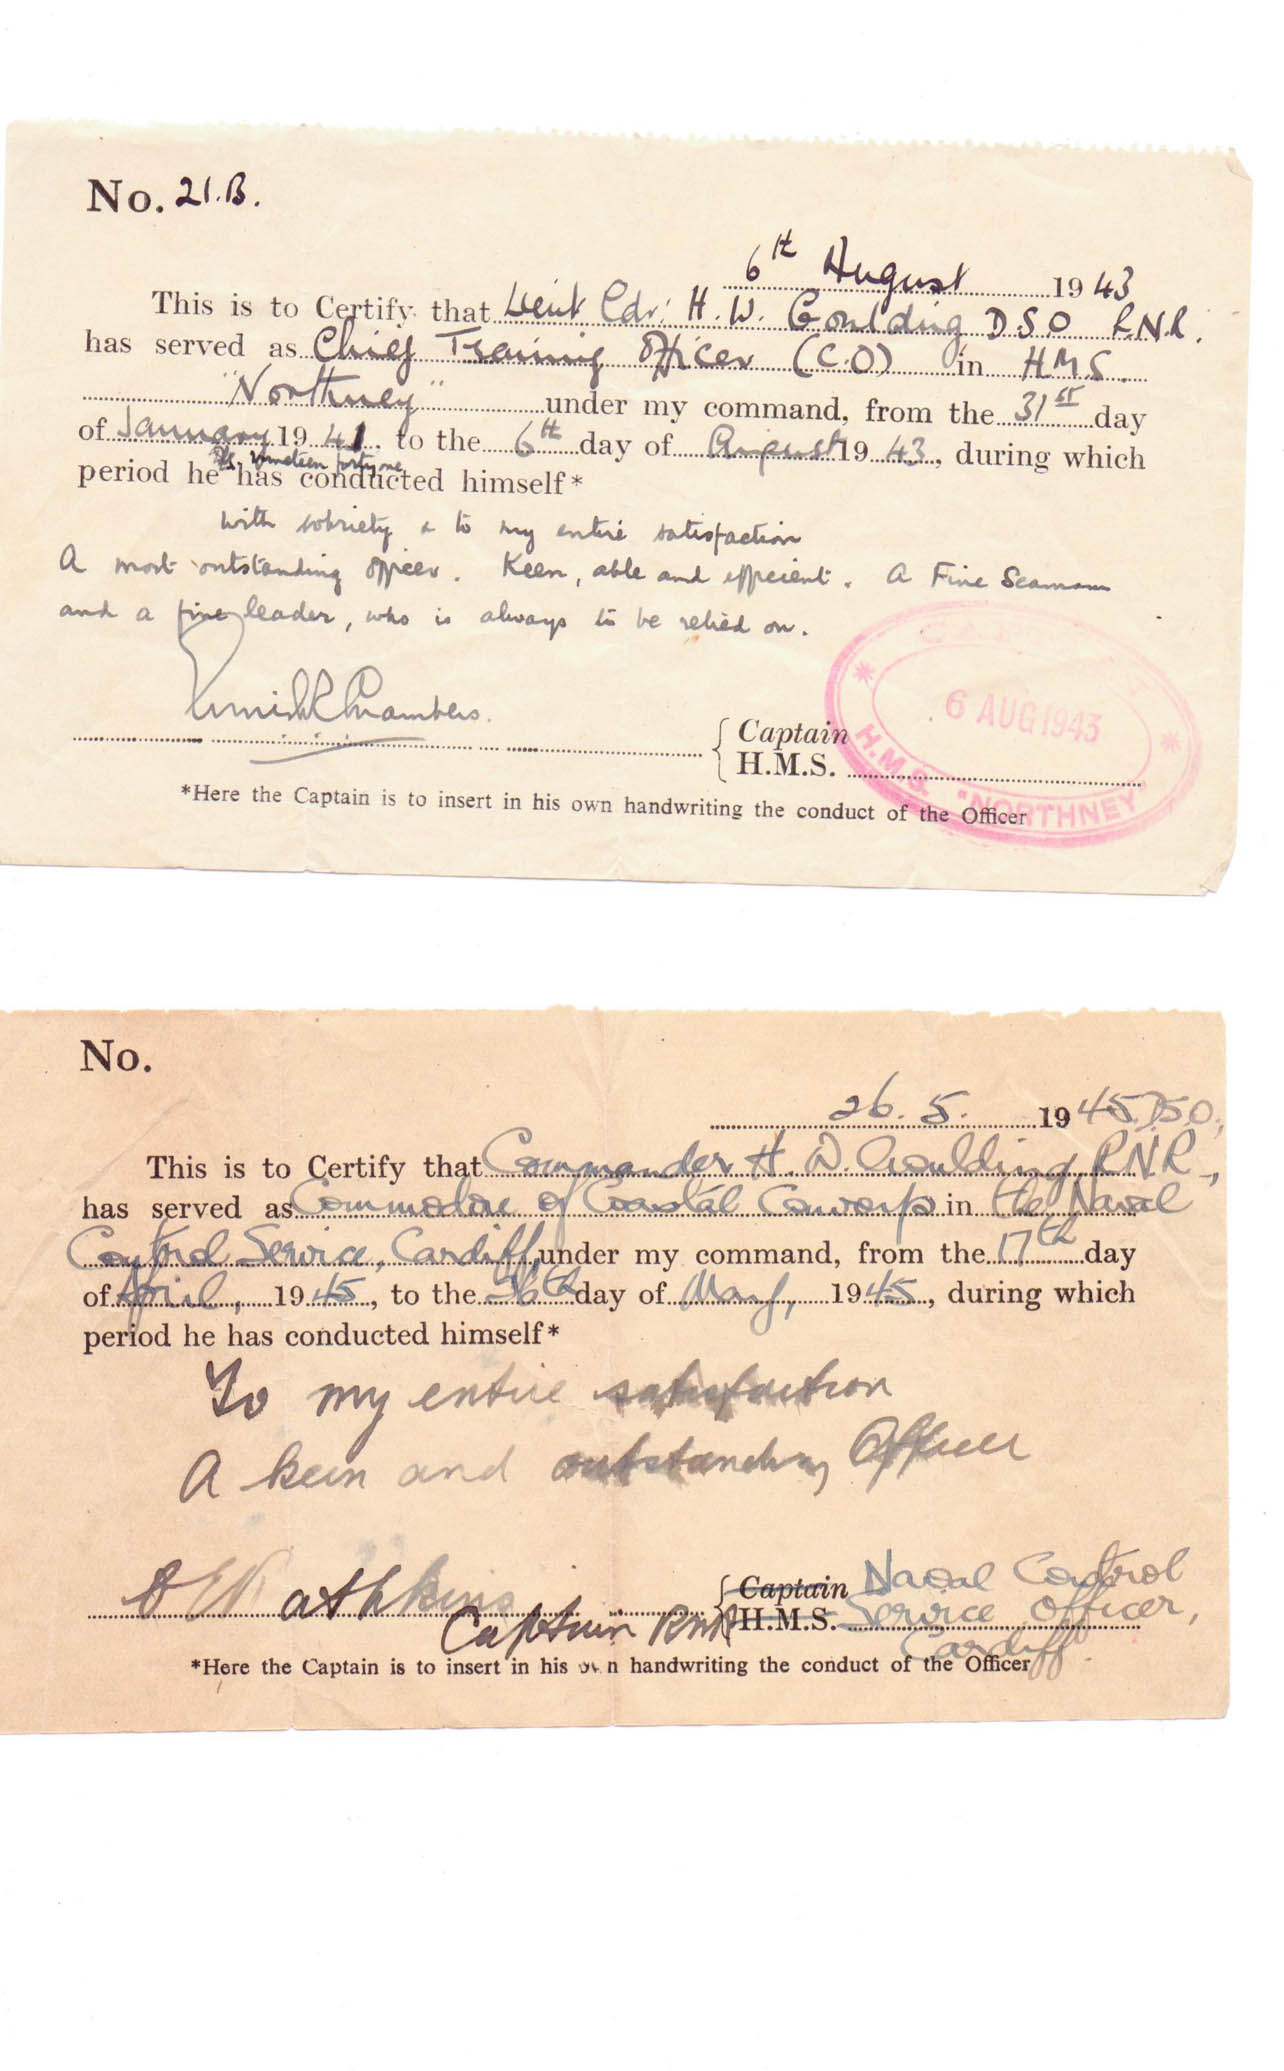 No. 21.B.
6th August 1943
This is to Certify that Lieut Cdr. H. W. Goulding DSO R.N.R.
has served as Chief Training Officer (C.O) in HMS.
"Northney" under my command, from the 31st day
of January 1941. to the 6th day of August 1943, during which
nineteen forty one
period he has conducted himself*
with sobriety & to my entire satisfaction
A most outstanding officer. Keen, able and efficient. A Fine Seaman
and a fine leader, who is always to be relied on.
Chambers.
Captain
H.M.S.
6 AUG 1943
H.M.S. "NORTHNEY"
*Here the Captain is to insert in his own handwriting the conduct of the Officer
No.
26. 5. 1945
D.S.O.,
This is to Certify that Commander H. W. Goulding, RNR,
has served as Commodore of Coastal Convoys in the Naval
Control Service, Cardiff, under my command, from the 17th day
of April, 1945, to the 26th day of May, 1945, during which
period he has conducted himself*
To my entire satisfaction
A keen and outstanding Officer
Captain RNR
Captain Naval Control
H.M.S. Service Officer,
Cardiff.
*Here the Captain is to insert in his own handwriting the conduct of the Officer